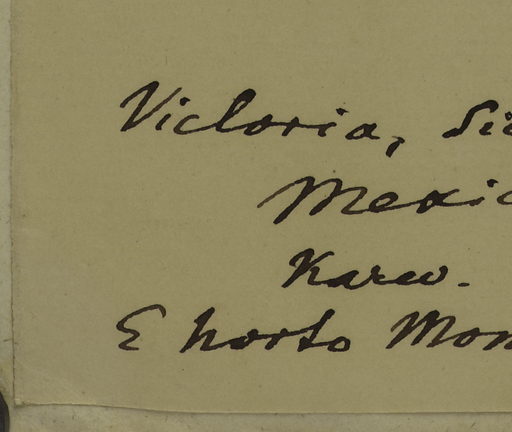 Victoria,
Mexic
Karw.
E horto Mon